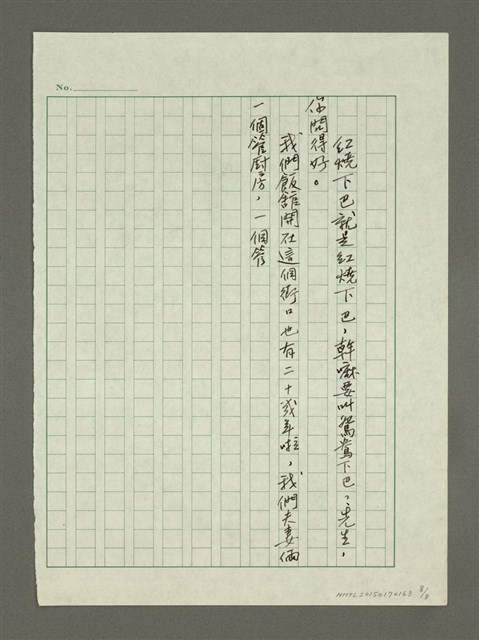 No.
「紅燒下巴就是紅燒下巴，幹嘛要叫鴛鴦下巴，先生，
你問得好。
「我們飯館開在這個街口也有二十幾年啦，我們夫妻倆
一個管廚房，一個管
NMTL20150170163 8/8